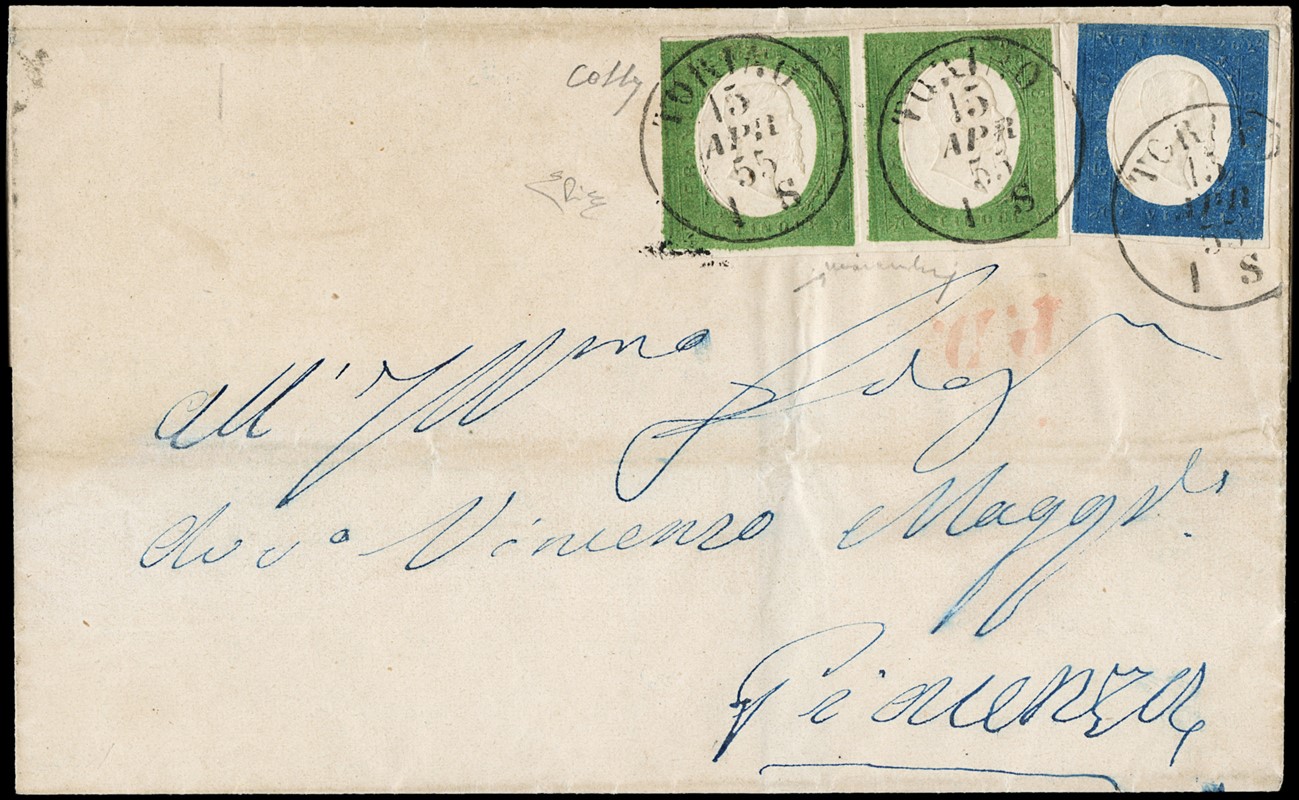 Colly
TORINO
15
APR
55
1 S
TORINO
15
APR
55
1 S
TORINO
15
APR
55
1 S
P.D.
All' Ill mo Sig r
Avv o Vincenzo Magg
Piacenza